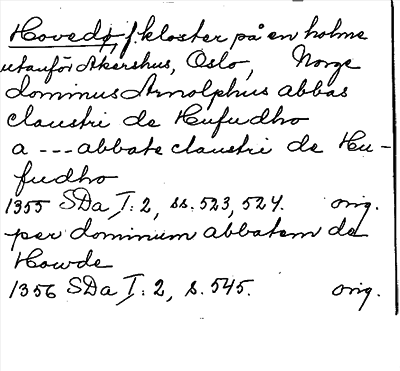 Hovedø, f. kloster på en holme
utanför Akershus, Oslo, Norge
dominus Arnolphus abbas
claustri de Hufudho
a --- abbate claustri de Hu-
fudho
1355 SDa I:2, ss. 523, 524. orig.
per dominum abbatem de
Howde
1356 SDa I:2, s. 545. orig.